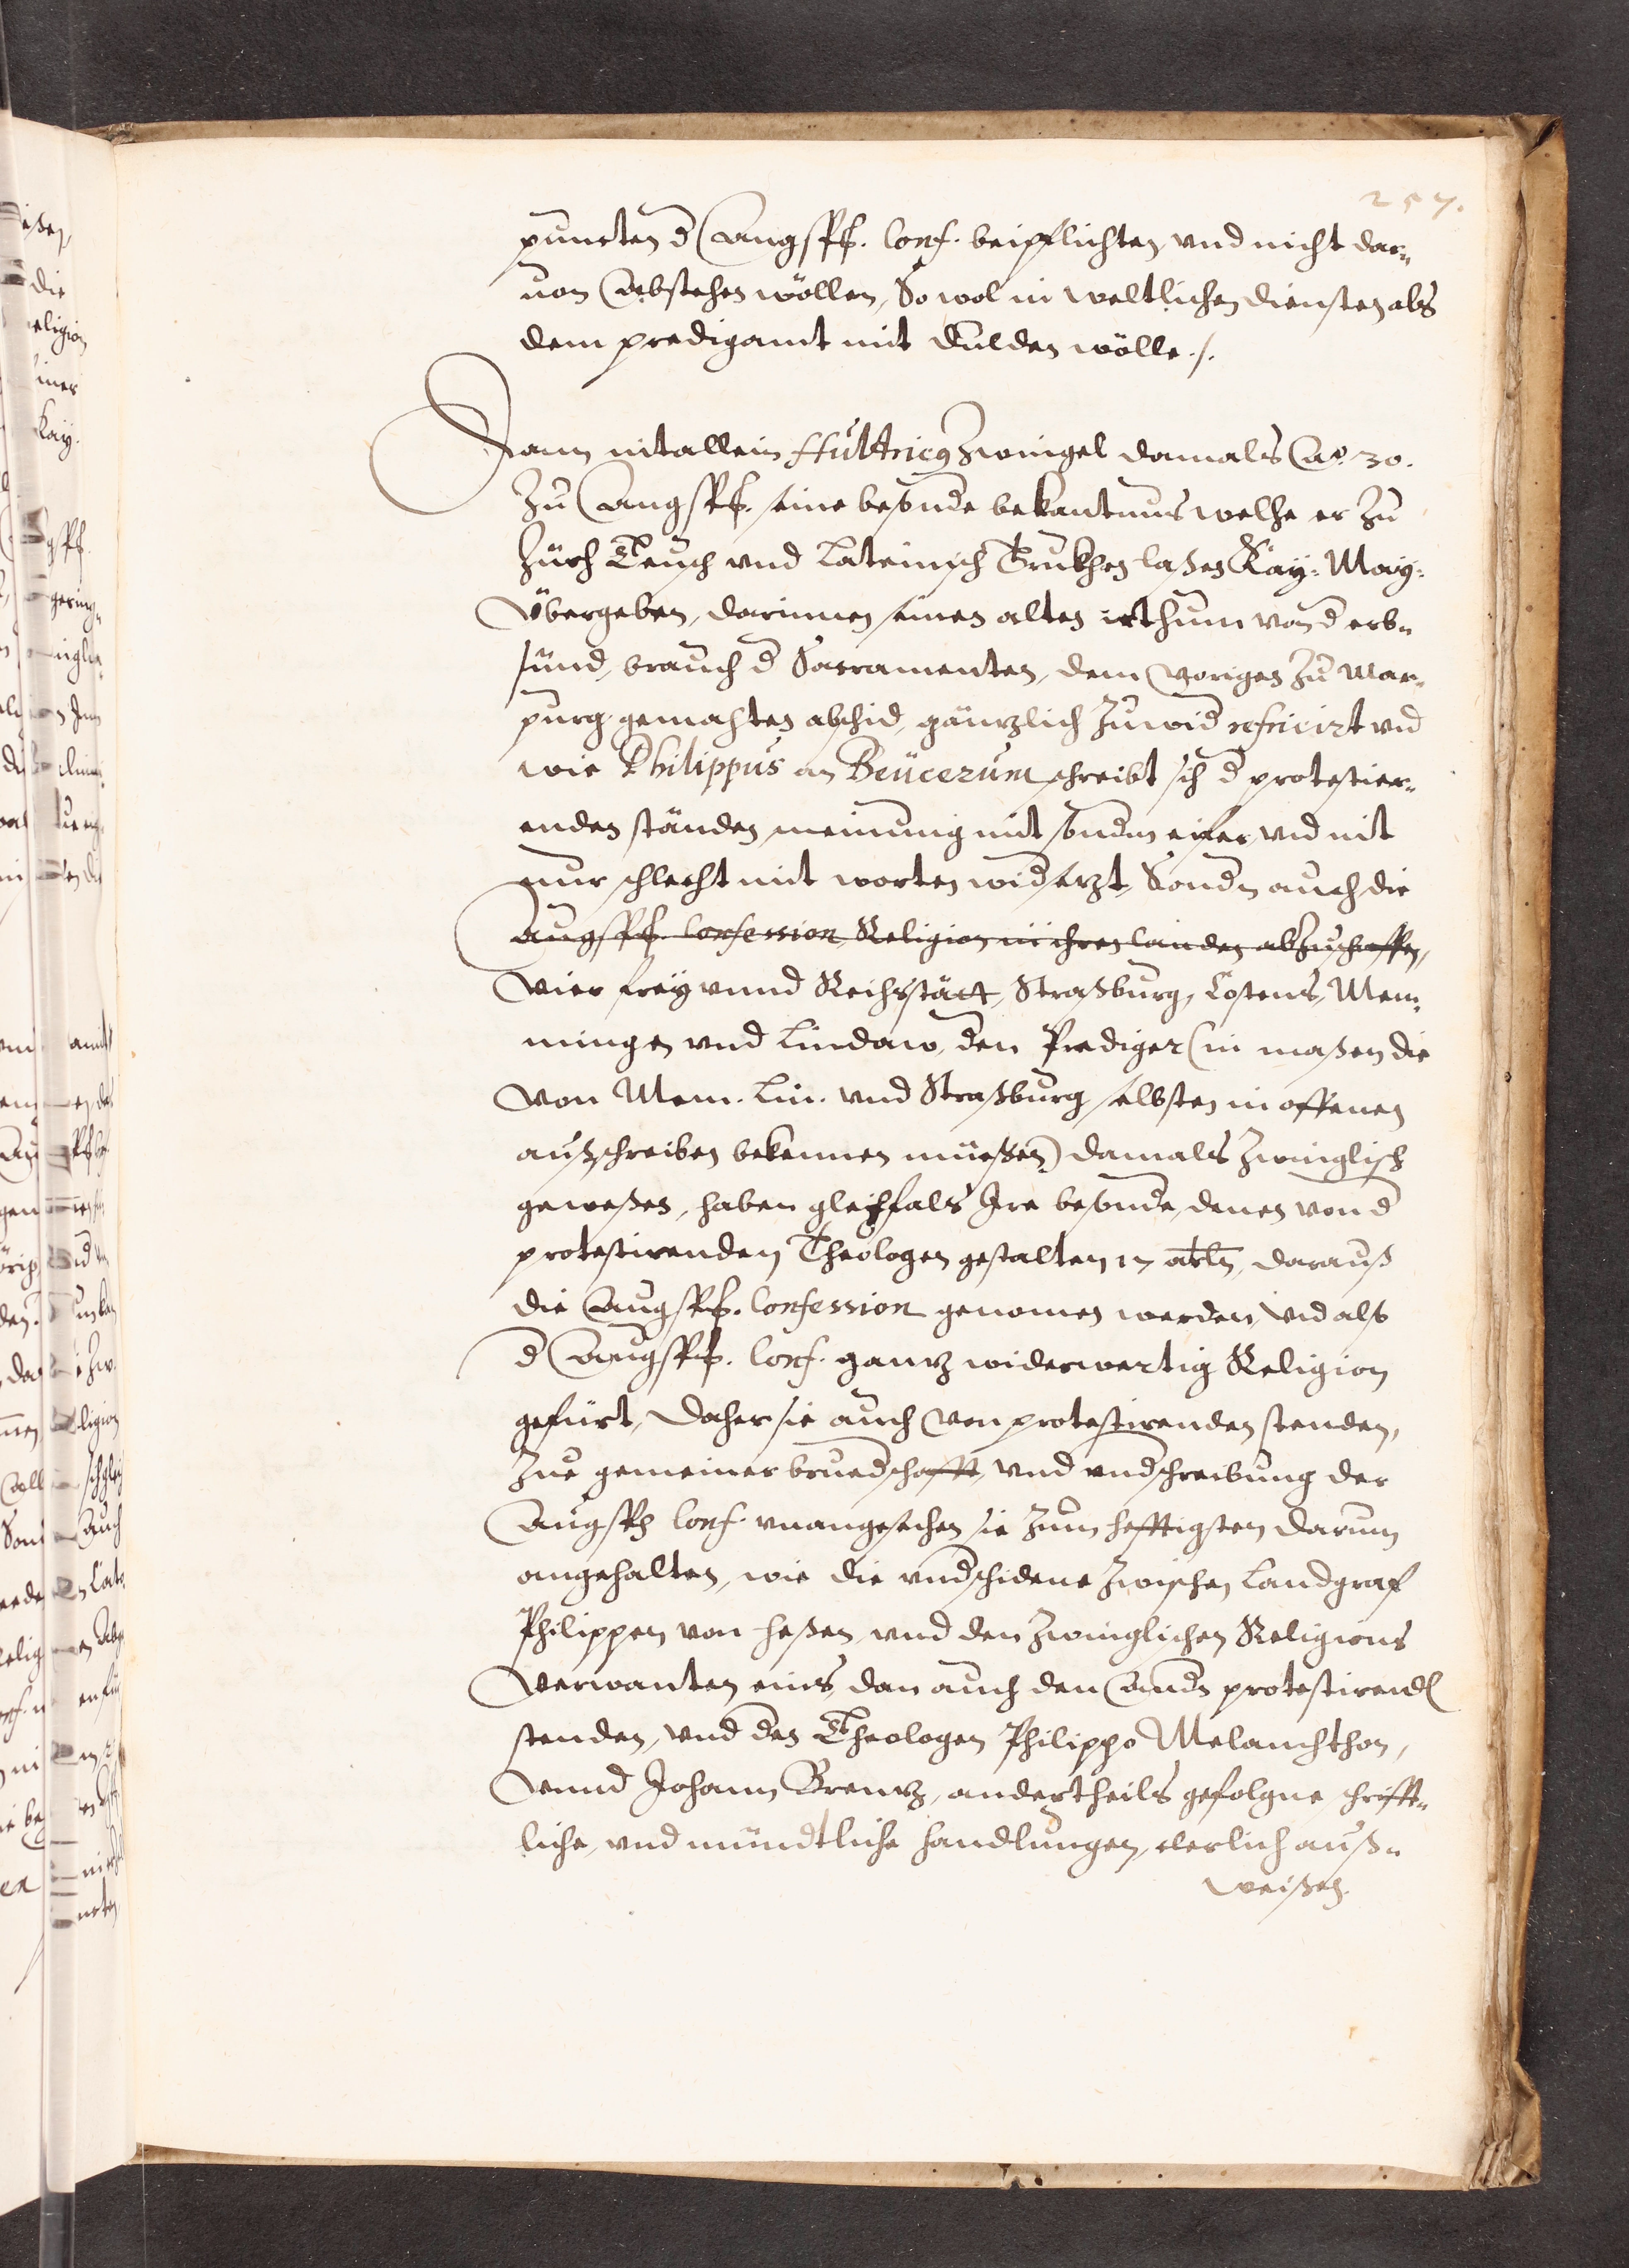 257.
puncten d Augspß. Conf. beipflichten, vnd nicht dar„
uon Abstehen wöllen, So wol in weltlichen diensten als
dem predigamt mit dulden wölle ./.
Dann nit allein Hultricq Zwingel damals Ao. 30.
Zu Augspß. seine besonde bekantnus welche er zu
Zürch Teusch vnd Lateinisch Trukhen laßen Kay: May:
Vbergeben, darinnen seinen alten irthum von d erb„
sünd, brauch d Sacramenten, dem vorigen zu Mar„
purg gemachten abschid, gäntzlich zuwid reficirt vnd
wie Philippus an Beücerum schreibt sich d protestier„
enden ständen meinung mit sondm eifer vnd nit
nur schlecht mit worten widsetzt, Sondn auch die
Augspß. Confession Religion in ihren landen abzuschaffen,
Vier frey vnnd Reichstätt, Straßburg, Costens, Mem„
mingen vnd Lindaw, den Prediger (in maßen die
von Mem. Lin. vnd Straßburg selbsten in offenen
außschreiben bekennen müeßen) damals Zwinglisch
geweßen, haben gleichfals Ire besonde, denen von d
protestirenden Theologen gestalten 17 artln, darauß
die Augspß. Confession genomen worden, vnd also
d Augspß. Conf. gantz widerwertig Religion
gefürt, daher sie auch von protestirenden stenden,
zue gemeiner bruedschafft, vnd vndschreibung der
Augspß Conf. vnangesehen sie zum hefftigsten darum
angehalten, wie die vndschidene zwischen Landgraf
Philippen von Heßen vnd den Zwinglischen Religions
Verwanten eins, dan auch den Andn protestirenden
stenden, vnd den Theologen Philippo Melanchthon,
vnnd Johann Brentz, andertheils gefolgne schrifft„
liche, vnd mündtliche handlungen, clerlich auß„
weißen.